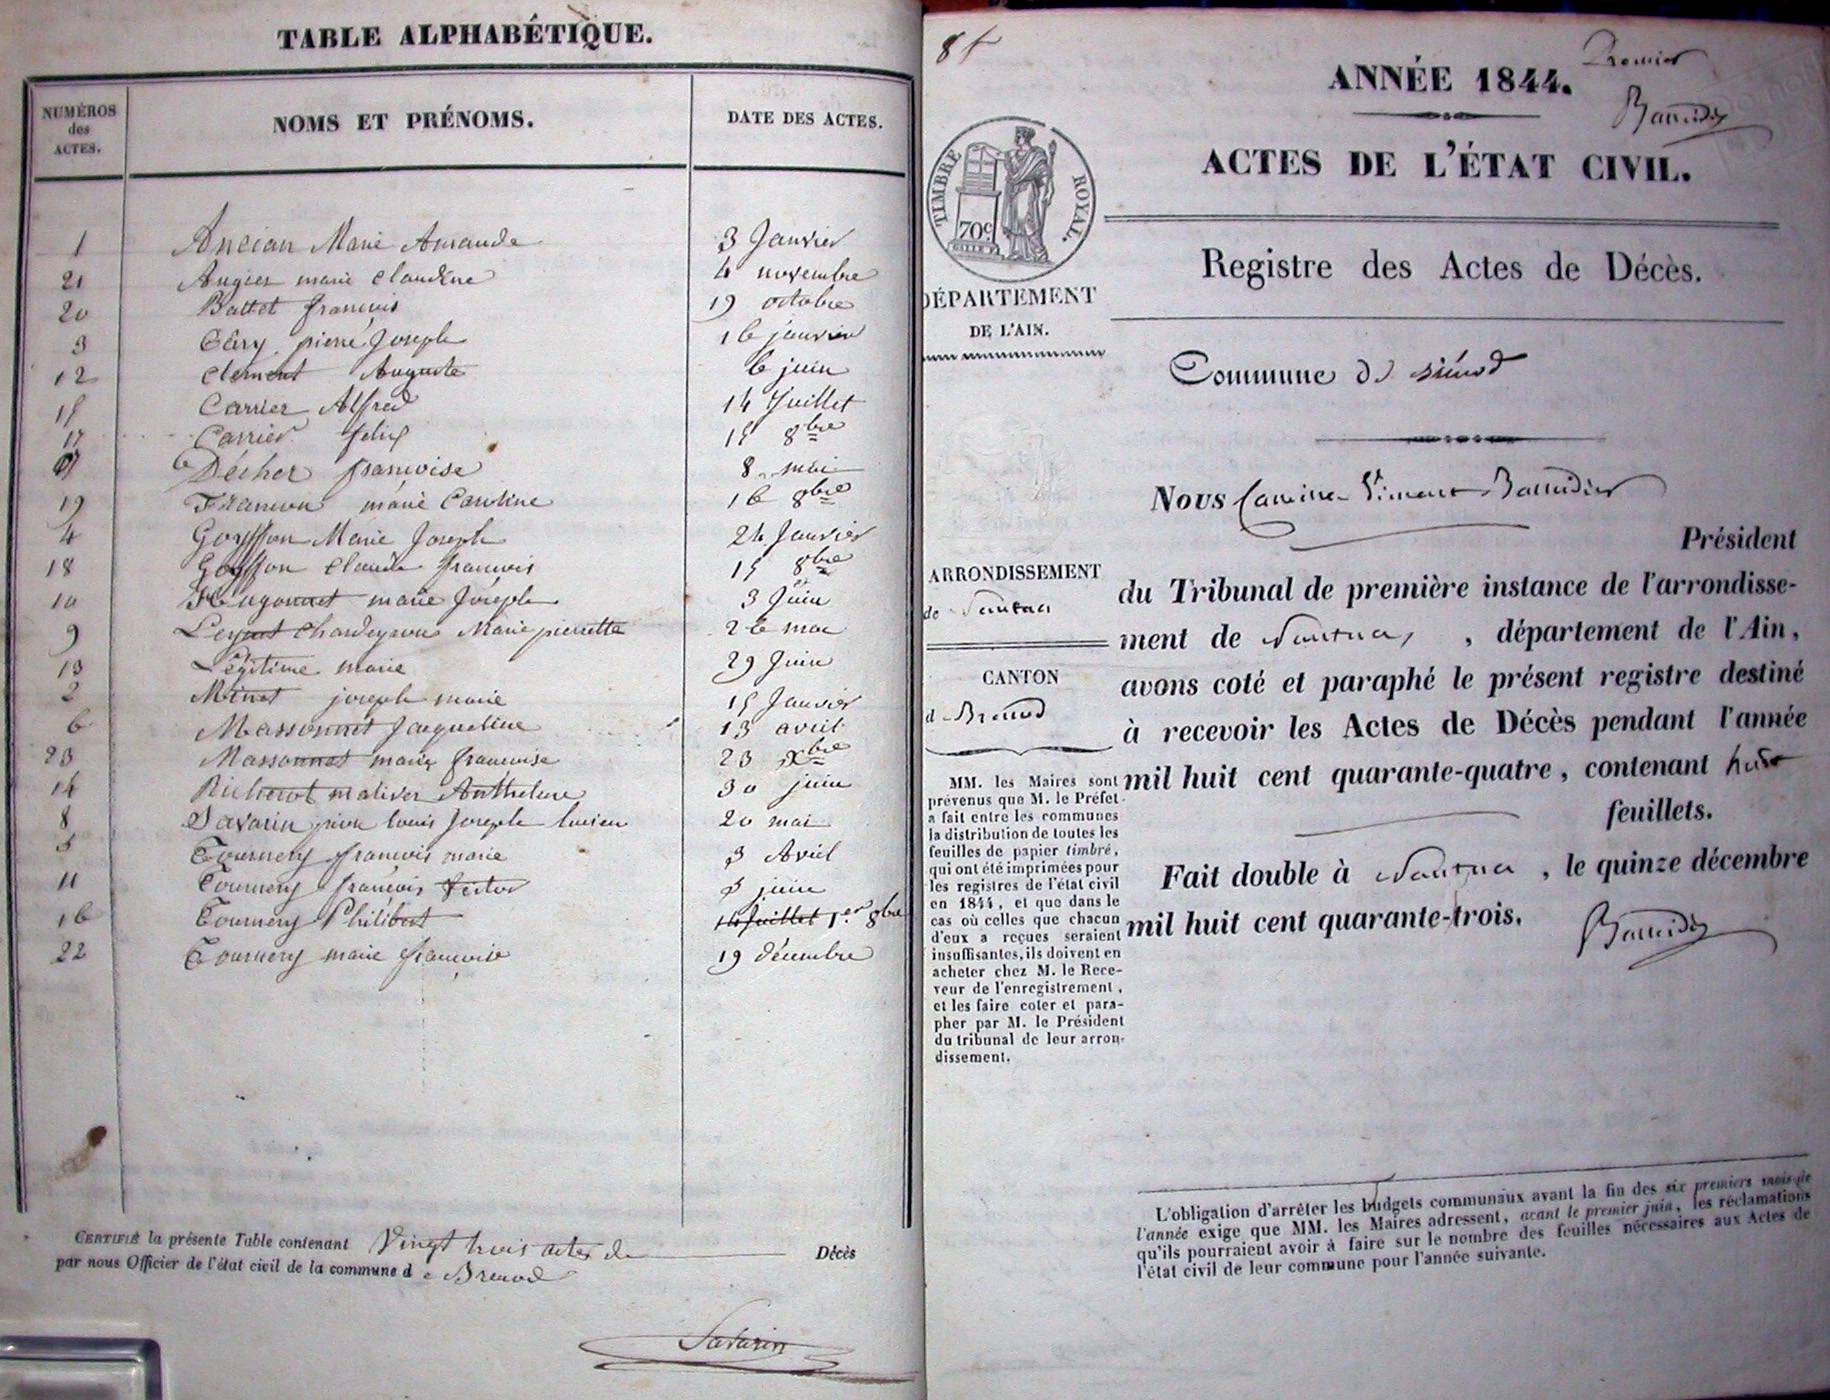 TABLE ALPHABÉTIQUE.
NUMÉROS des ACTES.
NOMS ET PRÉNOMS.
DATE DES ACTES.
1 Ancian Marie Amande 3 Janvier
21 Augier marie claudine 4 novembre
20 Battet françois 19 octobre
3 Céry pierre Joseph 16 janvier
12 Clement Auguste 6 juin
15 Carrier Alfred 14 Juillet
17 Carrier felix 15 8bre
7 Décher françoise 8 mai
19 Francon marie Caroline 16 8bre
4 Goyffon Marie Joseph 24 Janvier
18 Goyffon Claude françois 15 8bre
10 Hugonnet marie Joseph 3 Juin
9 Chardeyron Marie pierrette 26 mai
13 Légitime marie 29 Juin
2 Minet joseph marie 15 Janvier
6 Massonnet Jacqueline 13 avril
23 Massonnet marie françoise 23 Xbre
14 Anthelme 30 juin
8 Savarin louis Joseph lucien 20 mai
5 Tournery françois marie 3 Avril
11 Tournery françois Victor 5 juin
16 Tournery Philibert 14 Juillet 1.er 8bre
22 Tournery marie françoise 19 décembre
CERTIFIÉ la présente Table contenant Vingt trois actes de Décès
par nous Officier de l'état civil de la commune d e Brenod
Savarin
8 f
Premier
ANNÉE 1844.
ACTES DE L'ÉTAT CIVIL.
TIMBRE ROYAL.
70c
Registre des Actes de Décès.
DÉPARTEMENT
DE L'AIN.
Commune de Brénod
Nous
Président
du Tribunal de première instance de l'arrondisse-
ment de Nantua, département de l'Ain,
avons coté et paraphé le présent registre destiné
à recevoir les Actes de Décès pendant l'année
mil huit cent quarante-quatre, contenant huit
feuillets.
Fait double à Nantua, le quinze décembre
mil huit cent quarante-trois.
ARRONDISSEMENT
de Nantua
CANTON
d Brenod
MM. les Maires sont
prévenus que M. le Préfet
a fait entre les communes
la distribution de toutes les
feuilles de papier timbré,
qui ont été imprimées pour
les registres de l'état civil
en 1844, et que dans le
cas où celles que chacun
d'eux a reçues seraient
insuffisantes, ils doivent en
acheter chez M. le Rece-
veur de l'enregistrement,
et les faire coter et para-
pher par M. le Président
du tribunal de leur arron-
dissement.
L'obligation d'arrêter les budgets communaux avant la fin des six premiers mois de
l'année exige que MM. les Maires adressent, avant le premier juin, les réclamations
qu'ils pourraient avoir à faire sur le nombre des feuilles nécessaires aux Actes de
l'état civil de leur commune pour l'année suivante.